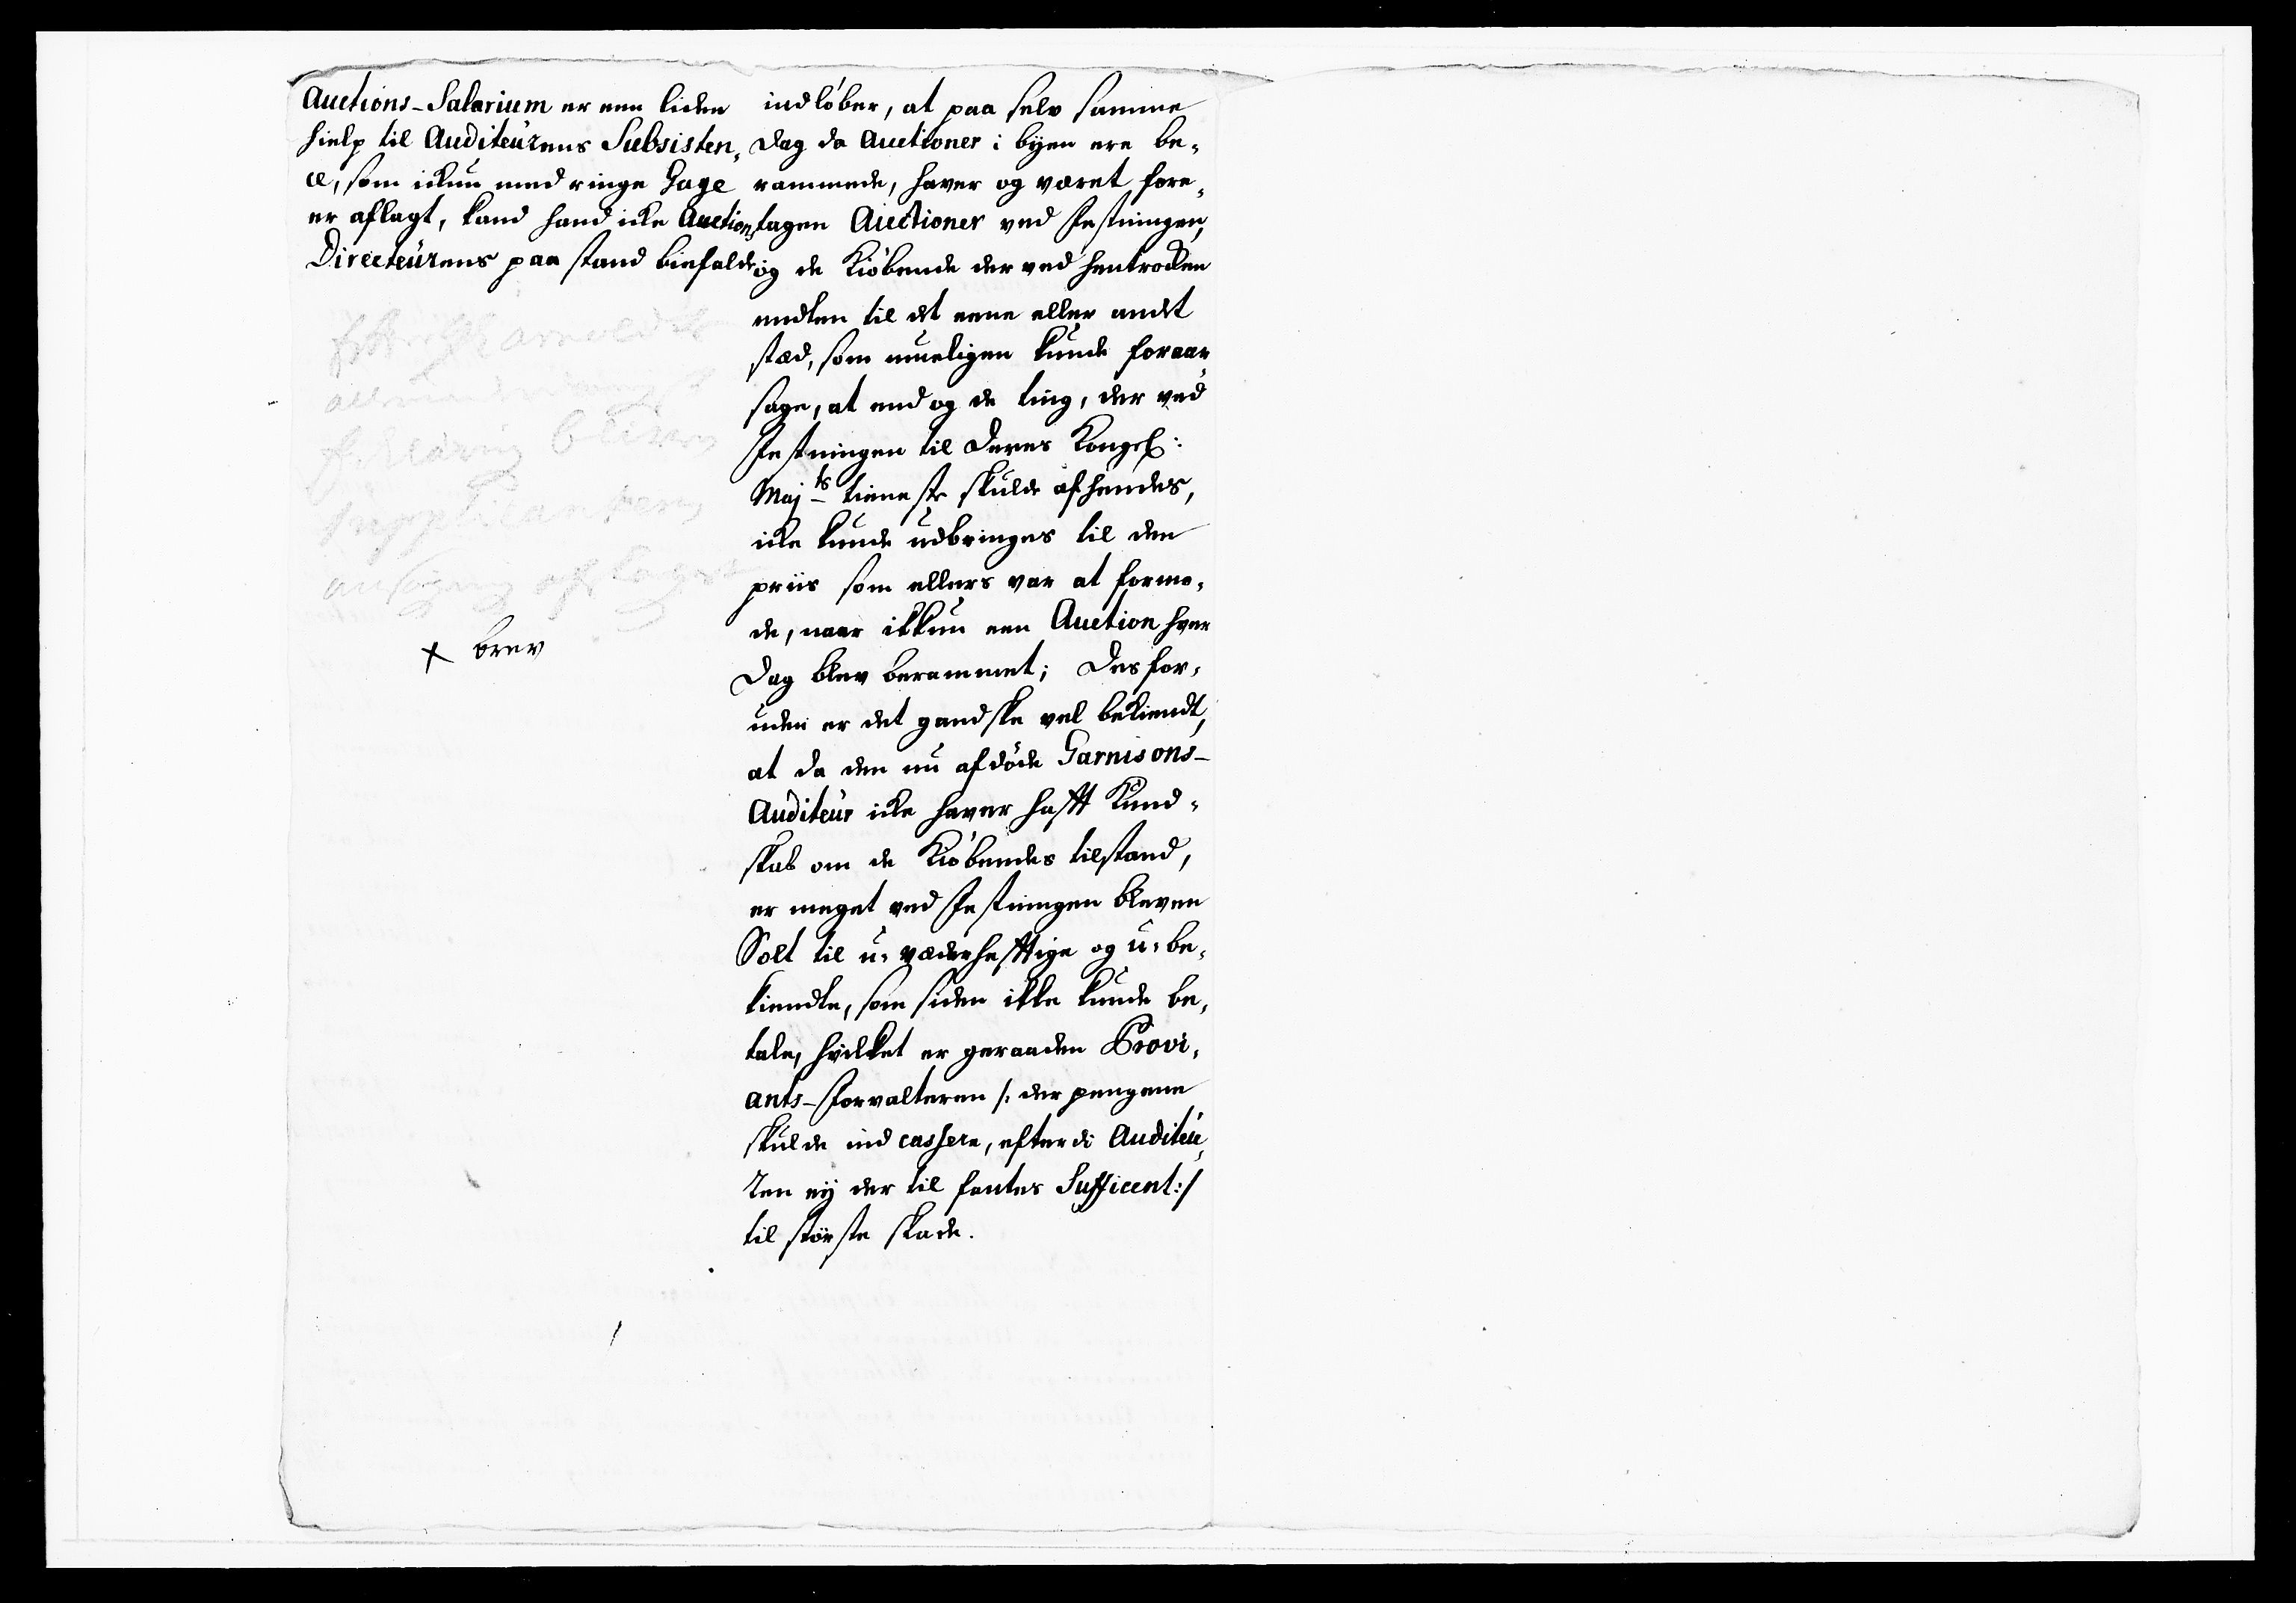 Auctions-Salarium er een liden
hielp til Auditeurens Subsisten,
ce, som ickun med ringe Gage
er aflagt, kand hand icke Auctions
Directeurens paastand biefalde
arnoldt
bliver
Supplicantens
ansøgning aflagt
x brev
indlöber, at paa selv samme
Dag da Auctioner i byen ere be,
rammede, haver og været fore,
tagen Auctioner ved Festningen,
og de Kiöbende der ved hentrocken
endten til det eene eller andet
stæd, som mueligen kunde foraar,
sage, at end og de ting, der ved
Festningen til Deres Kongel:
Majts tieneste skulde afhendes,
icke kunde udbringes til den
priis som ellers var at formo,
de, naar ikkun een Auction hver
Dag blev berammet; Desfor,
uden er det gandske vel bekiendt,
at da den nu afdöde Garnisons-
Auditeur icke haver hafft Kund,
skab om de Kiöbendes tilstand,
er meget ved Festningen bleven
Solt til u-vederhefftige og u-be,
kiendte, som siden ikke kunde be,
tale, hvilket er geraaden Provi,
ants-Forvalteren /: der pengene
skulde ind cassere, efterdi Auditeu,
ren ey der til fantes Sufficent :/
til störste skade.